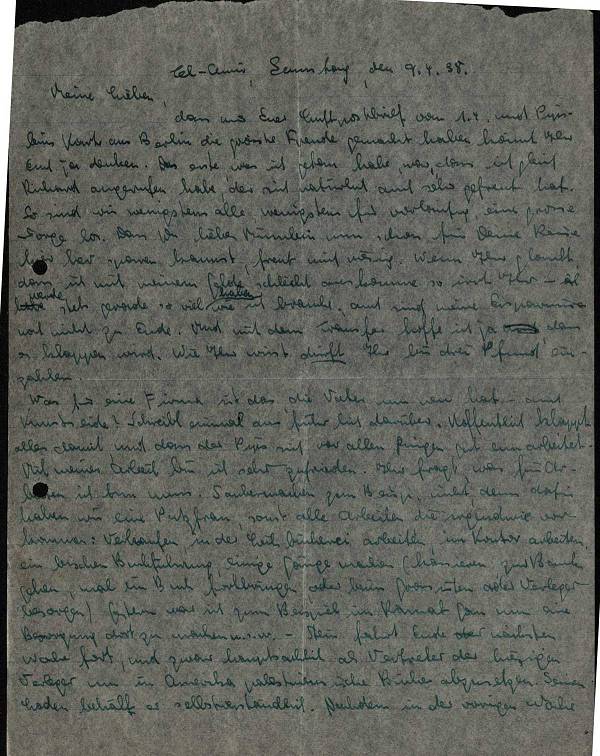 Tel-Aviv, Samstag, den 9.4.38.
Meine Lieben,
dass mir Euer Luftpostbrief vom 1.4. und
Karte aus Berlin die grösste Freude gemacht haben könnt Ihr
Euch ja denken. Das erste was ich getan habe, war, dass ich gleich
Richard angerufen habe, der sich natürlich auch sehr gefreut hat.
So sind wir wenigstens alle, wenigstens für vorläufig, eine grosse
Sorge los. Dass Du, liebes nun schon für Deine Reise
hier her sparen kannst, freut mich riesig. Wenn Ihr glaubt,
dass ich mit meinem Gelde schlecht auskomme so irrt Ihr – ich
stets gerade so viel wie ich brauche, auch sind meine Ersparnisse
noch nicht zu Ende. Und mit dem Transfer hoffe ich ja dass
es klappen wird. Wie Ihr wisst dürft Ihr bis drei Pfund ein-
zahlen.
Was für eine Firma ist das, die Vater nun neu hat – auch
Kunstseide? Schreibt einmal ausführlich darüber. Hoffentlich klappt
alles damit und dass der sich vor allen Dingen gut einarbeitet.
Mit meiner Arbeit bin ich sehr zufrieden. Ihr fragt, was für Ar-
beiten ich tun muss. Saubermachen zum Beispiel nicht, denn dafür
haben wir eine Putzfrau, sonst alle Arbeiten die irgendwie vor-
kommen: Verkaufen, in der Leihbücherei arbeiten, im Kontor arbeiten,
ein bischen Buchführung, einige Gänge machen (kassieren, zur Bank
gehen, mal ein Buch fortbringen oder beim Grossisten oder Verleger
besorgen) gestern war ich zum Beispiel in Ramat Gan um eine
Besorgung dort zu machen u.s.w. – fährt Ende oder nächsten
Woche fort, und zwar hauptsächlich als Vertreter der hiesigen
Verleger um in Amerika palästinensische Bücher abzusetzen. Seinen
Laden behält er selbstverständlich. Nachdem in der vorigen Woche